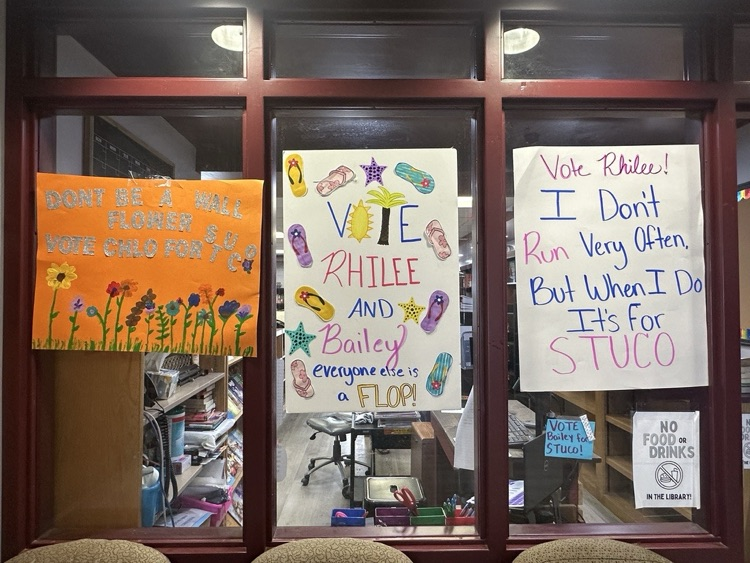 DONT BE A WALL
FLOWER
VOTE CHLO FOR STUCO
VOTE
RHILEE
AND
Bailey
everyone else is
a FLOP!
Vote Rhilee!
I Don't
Run Very Often,
But When I Do
It's For
STUCO
VOTE
Bailey for
STUCO!
NO
FOOD OR
DRINKS
IN THE LIBRARY!